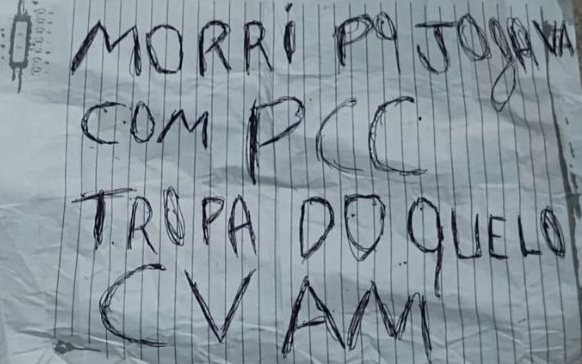 MORRI PQ JOGAVA
COM PCC
TROPA DO QUELO
CV AM